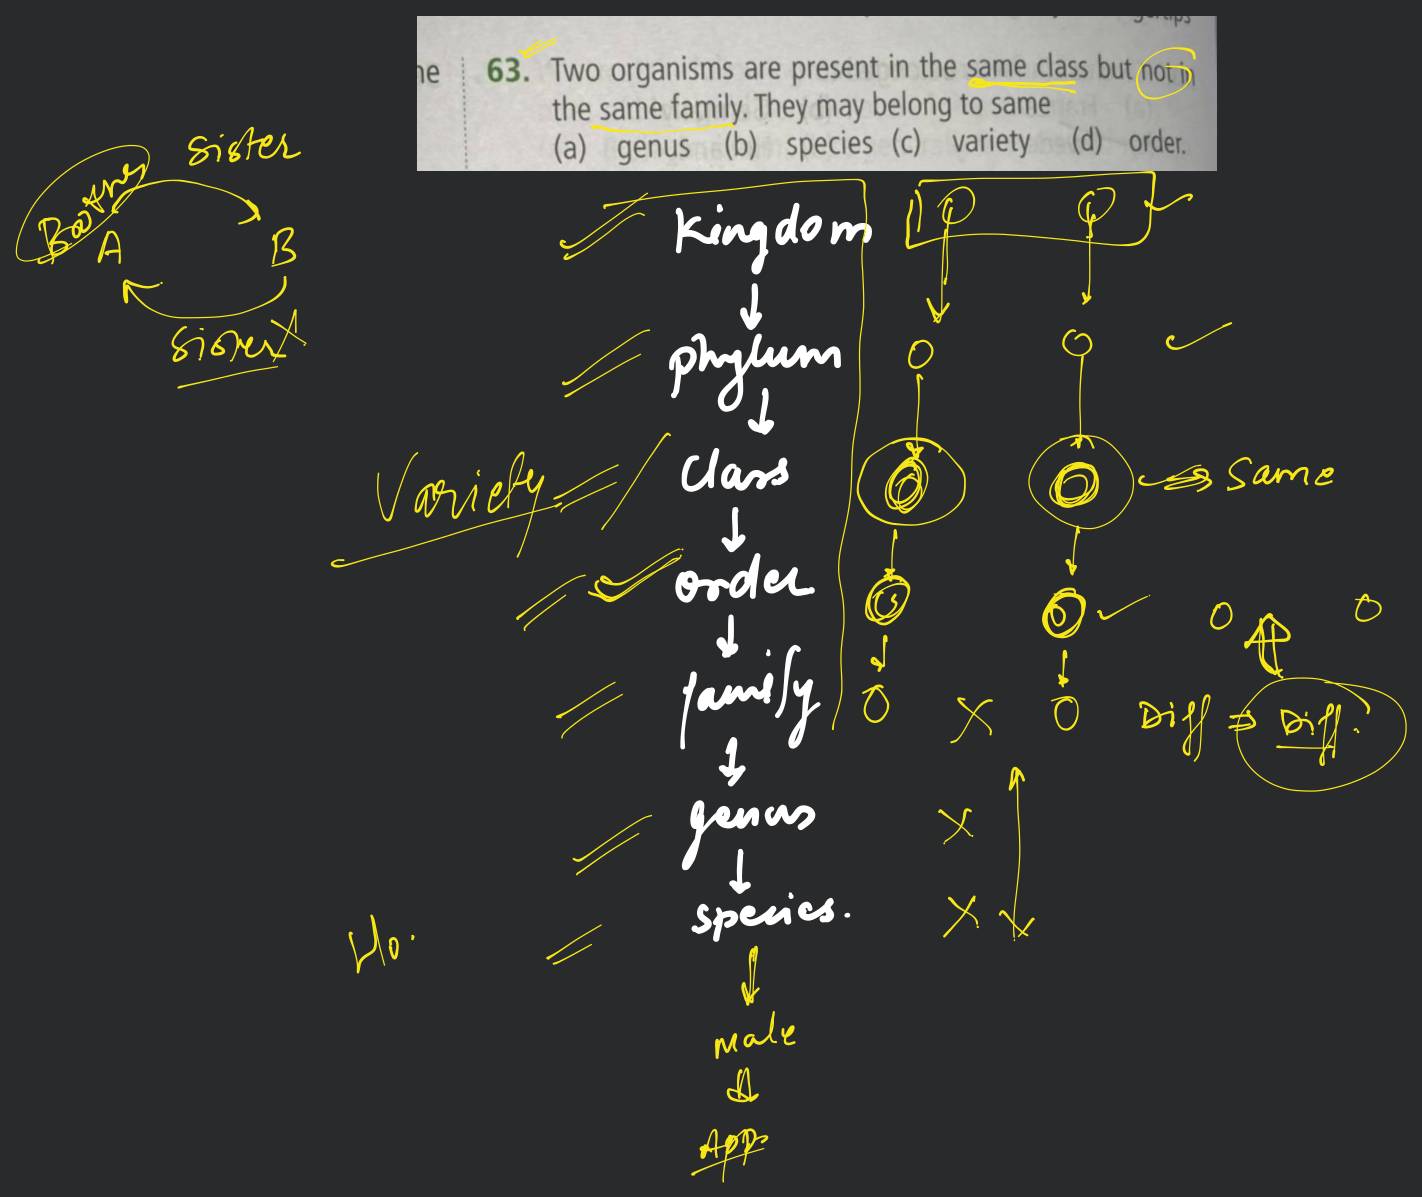 63. Two organisms are present in the same class but not in
the same family. They may belong to same
(a) genus (b) species (c) variety (d) order.
Sister
A B
Kingdom
phylum
Variety
Class
Same
order
family
Diff Diff.
genus
species.
Male